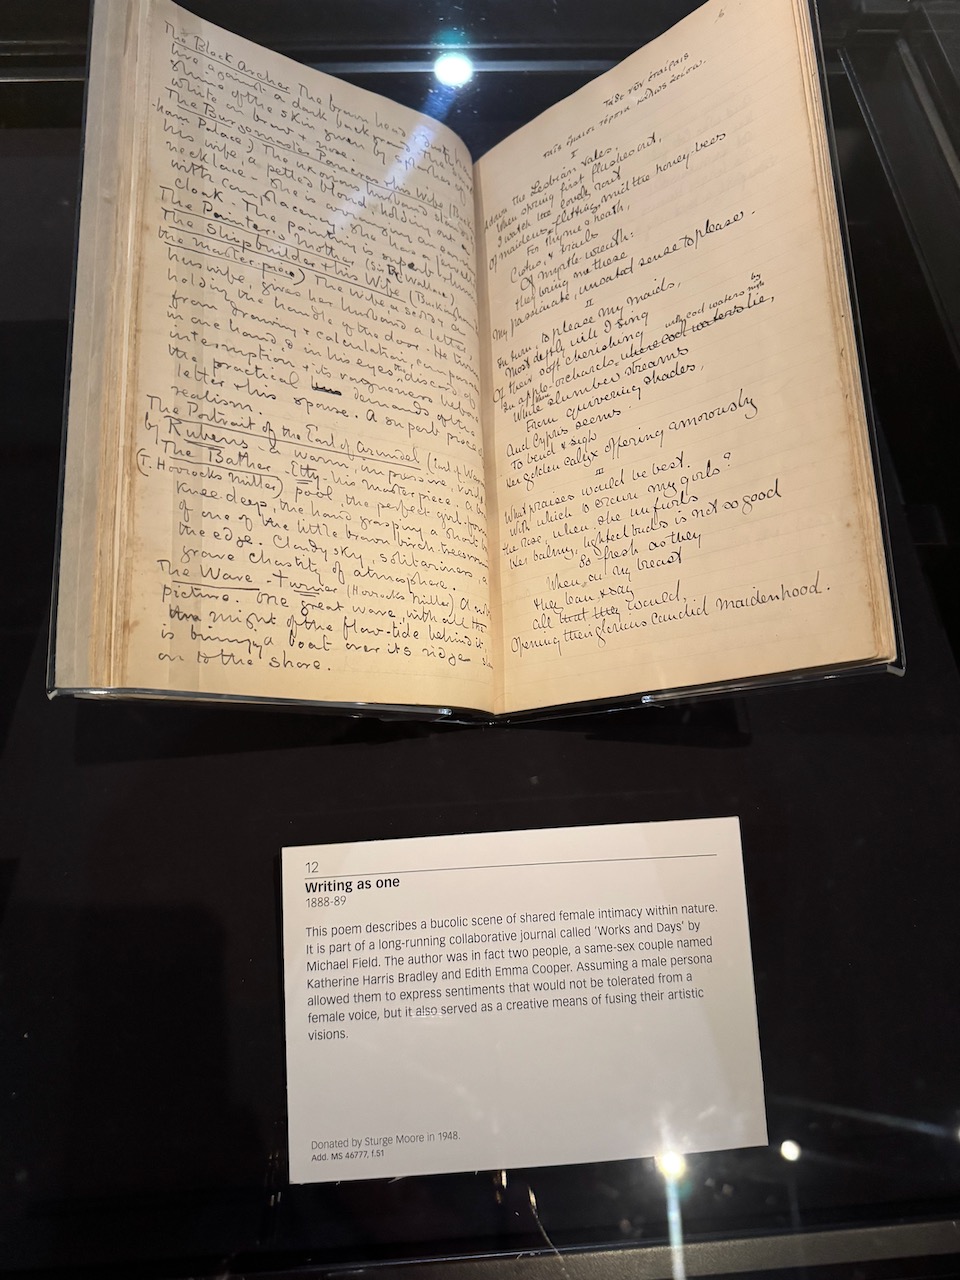 The Black Archer The brown head + death, he
live against a dark background. The high
shine of the skin given by a splash of
white on brow + nose.
The Burgomaster Pancras + his Wife (Buck-
-ham Palace) The uxorious husband stands
his wife, a petted blond, holding out a
necklace - she is arranging an earring
with complacency. She has a jewelled
cloak. The painting is superb
The Painter's Mother (Sir R. Wallace)
The Shipbuilder + his Wife (Buckingham
the master-piece) The wife
has wife, gives her husband a letter,
holding the handle of the door. He turns
from drawing + calculation, compasses
in one hand, + in his eyes discord of
interruption + its vagueness before
the practical demands of the
letter + his spouse. A superb piece of
realism.
The Portrait of the Earl of Arundel (Earl of Warw
by Rubens - a warm, impressive, virile
The Bather - Etty - his masterpiece. A
(T. Horrocks Miller) pool, the perfect girl-form
knee-deep, the hand grasping a shoot
of one of the little brown birch-trees
the edge. Cloudy sky, solitariness, a
grave chastity of atmosphere.
The Wave - Turner (Horrocks Miller) A
picture. One great wave, with all the
might of the flow-tide behind it,
is bringing a boat over its ridge
on to the shore.
6
τάδε νῦν ἑταίραις
ταῖς ἔμαισι τέρπνα κάλως ἀείσω.
I
Adown the Lesbian vales,
When spring first flashes out,
I watch the lovely rout
Of maidens flitting mid the honey-bees
For thyme + heath,
Cistus, + trails
Of myrtle-wreath:
They bring me these
My passionate, unsated sense to please.
II
In turn, to please my maids,
Most deftly will I sing
Of their soft cherishing
In apple-orchards, where cool waters lie,
with cool waters by
nigh
While slumber streams
From quivering shades,
And Cypris seems
To bend + sigh
Her golden calyx offering amorously
III
What praises would be best
With which to crown my girls?
The rose, when she unfurls
Her balmy, lighted buds is not so good
So fresh as they
When on my breast
They lean, + say
All that they would,
Opening their glorious candid maidenhood.
12
Writing as one
1888-89
This poem describes a bucolic scene of shared female intimacy within nature.
It is part of a long-running collaborative journal called ‘Works and Days’ by
Michael Field. The author was in fact two people, a same-sex couple named
Katherine Harris Bradley and Edith Emma Cooper. Assuming a male persona
allowed them to express sentiments that would not be tolerated from a
female voice, but it also served as a creative means of fusing their artistic
visions.
Donated by Sturge Moore in 1948.
Add. MS 46777, f.51